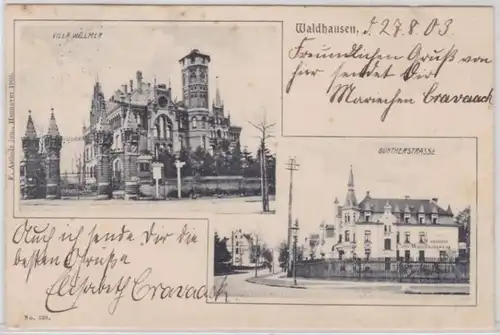 VILLA WILLMER
Waldhausen, d 27.8.03
Freundlichen Gruß von
hier sendet Dir
Mariechen Cravaack
GÜNTHERSTRASSE
Auch ich sende Dir die
besten Grüße
Elisabeth Cravaack
Hannover 1903.
No. 328.